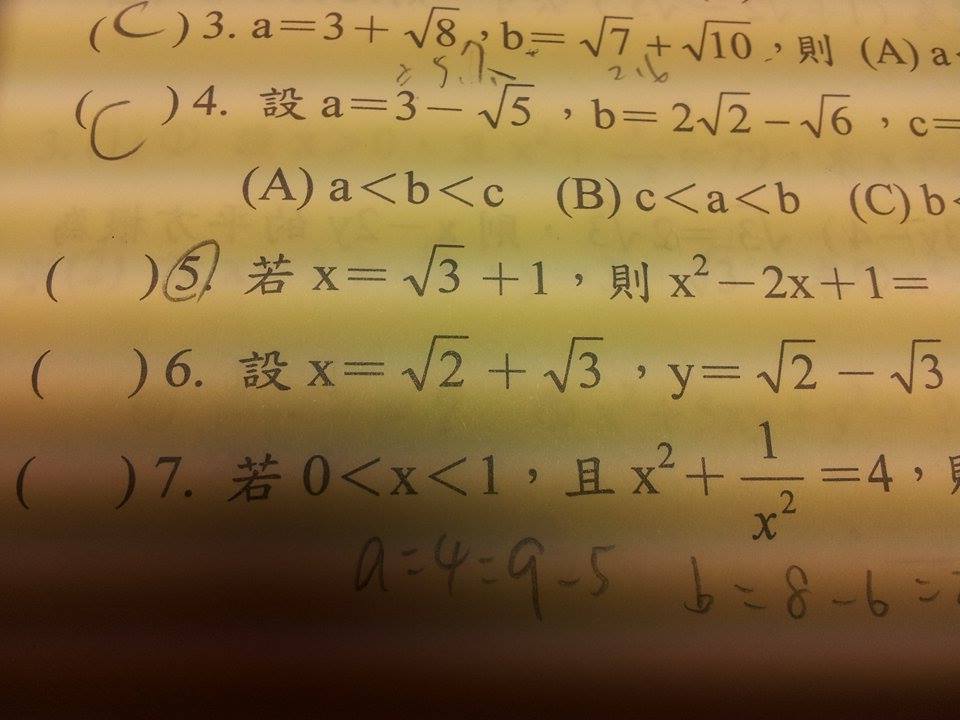 ( C ) 3. a=3+√8，b=√7+√10，則 (A) a
( C ) 4. 設 a=3−√5，b=2√2−√6，c=
(A) a<b<c (B) c<a<b (C) b<
( ) 5. 若 x=√3+1，則 x²−2x+1=
( ) 6. 設 x=√2+√3，y=√2−√3
( ) 7. 若 0<x<1，且 x²+1/x²=4，
a=4=9-5 b=8-6=